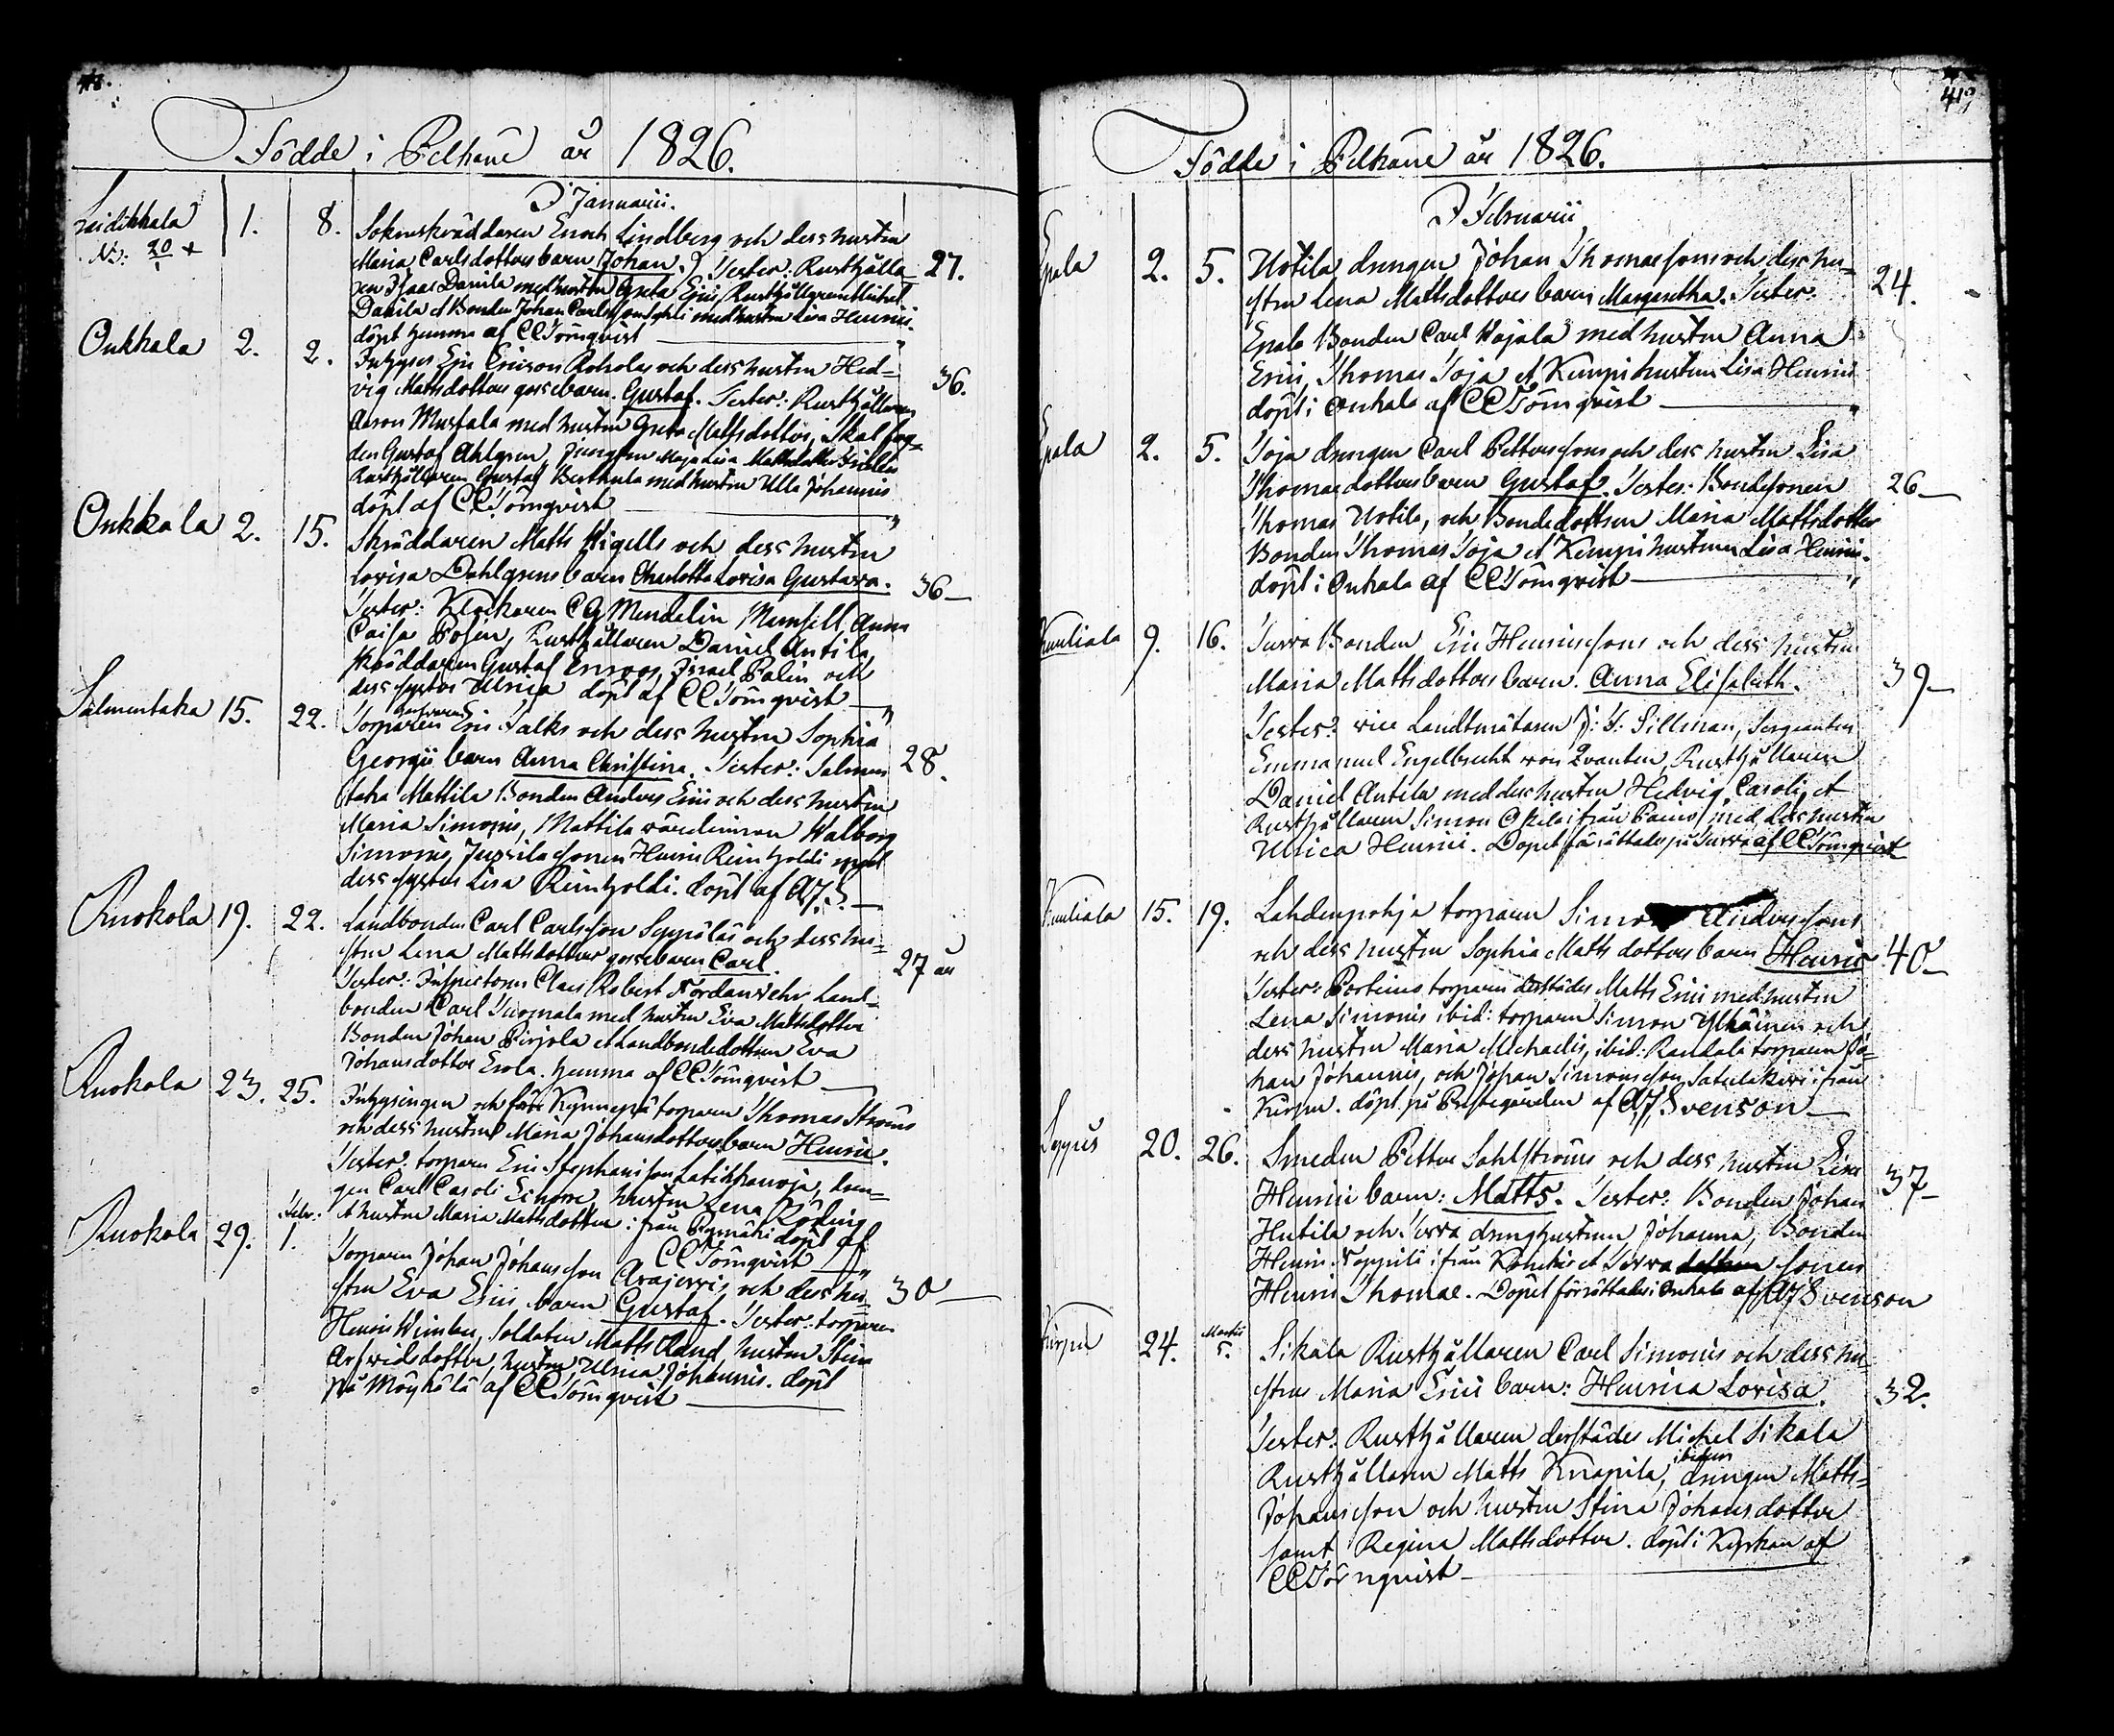 Födde i Pelkäne år 1826.
I Januarii.
Laidikkala 1. 8. Soknskräddaren Enoch Lindberg och dess hustru
Maria Carlsdotters barn Johan. Tester: Rusthålla- 27.
ren Isaac Danila med hustru Greta Erici, Rusthållaren Michel
Danila et Bonden Johan Carlsson med hustru Lisa Henrici.
döpt hemma af CCTörnqvist
Onkkala 2. 2. Inhyses Eric Ericson Roholas och dess hustru Hed-
vig Mattsdotters gossebarn. Gustaf. Tester: Rusthållaren 36.
Aaron Mustala med hustru Greta Mattsdotter, Skalfog-
den Gustaf Ahlgren, Jungfrun Maja Lisa Mattsdotter
Rusthållaren Gustaf Berthula med hustru Ulla Johannis
döpt af CCTörnqvist
Onkkala 2. 15. Skräddaren Matts Wigells och dess hustru
Lovisa Dahlgrens barn Charlotta Lovisa Gustava. 36
Tester: Klockaren CG Mendelin, Mamsell Anna
Caisa Polin, Rusthållaren Daniel Antila,
skräddaren Gustaf Enroos, Israel Palin och
dess syster Ulrica döpt af CCTörnqvist
Salmentaka 15. 22. Torparen Eric Falks och dess hustru Sophia
Georgii barn Anna Christina. Tester: Salmen 28.
taka Mattila Bonden Anders Erici och dess hustru
Maria Simonis, Mattila värdinnan Walborg
Simonis, Jussila sonen Henric Reinholdi med
dess syster Lisa Reinholdi. döpt af AJS.
Ruokola 19. 22. Landbonden Carl Carlsson Seppäläs och dess hu-
stru Lena Mattsdotters gossebarn Carl. 27 år
Tester: Inspectorn Claes Robert Nordanvehr, Land-
bonden Carl Tuomala med hustru Eva Mattsdotter
Bonden Johan Pirjola et Landbondedottren Eva
Johansdotter Erola. hemma af CCTörnqvist
Ruokola 23. 25. Inhysingen och förr Kynnepä torparen Thomas Ströms
och dess hustrus Maria Johansdotters barn Henric.
Tester: torparn Eric Stephanison Latikkanoja, dren-
gen Carl Caroli Eerola, hustru Lena Röding
et hustru Maria Mattsdotter ifrån döpt af
CCTörnqvist
Ruokola 29. Febr: 1. Torparn Johan Johansson Arajervis och dess hu- 30
stru Eva Erici barn Gustaf. Tester: torparen
Henric Wimben, Soldaten Matts Rand, hustru Stina
Arfwidsdotter, hustru Ulrica Johannis. döpt
på Möyhölä af CCTörnqvist
419
Födde i Pelkäne år 1826.
I Februarii
Epala 2. 5. Uotila drengen Johan Thomaesons och dess hu-
stru Lena Mattsdotters barn Margaretha. Tester: 24.
Epala Bonden Carl Uojala med hustru Anna
Erici, Thomas Toja et Kempi hustrun Lisa Henrici
döpt i Onkala af CCTörnqvist
Epala 2. 5. Toja drengen Carl Pettersons och dess hustru Lisa
Thomaedotters barn Gustaf. Tester: Bondesonen 26
Thomas Uotila, och Bondedottren Maria Mattsdotter
Bonden Thomas Toja et Kempi hustrun Lisa Henrici.
döpt i Onkala af CCTörnqvist
Kuuliala 9. 16. Surra Bonden Eric Henricssons och dess hustru
Maria Mattsdotters barn. Anna Elisabeth. 39
Tester: vice Landtmätaren J: F: Sillman, Sergeanten
Emmanuel Engelbrecht von Qvanten, Rusthållaren
Daniel Antila med dess hustru Hedvig Caroli, et
Rusthållaren Simon Ofkila ifrån Pamo med dess hustru
Ulrica Henrici. Dopet förrättades på Surra af CCTörnqvist
Kuuliala 15. 19. Lahdenpohja torparen Simon Anderssons
och dess hustru Sophia Matts dotters barn Henric 40
Tester: torparen derstädes Matts Erici med hustru
Lena Simonis ibid: torparen Simon Ylhäinen och
dess hustru Maria Michaelis, ibid: Randala torparen Jo-
han Johannis, och Johan Simonsson Satulakivi ifrån
Kirpu. döpt på Prestegården af AJSvenson
Seppus 20. 26. Smeden Petter Sahlströms och dess hustru Lisa
Henrici barn: Matts. Tester: Bonden Johan 37
Hutila och Surra drenghustrun Johanna, Bonden
Henric Toppili ifrån et Surra sonen
Henric Thomae. Dopet förrättades i Onkala af AJSvenson
24. Martii 5. Sikala Rusthållaren Carl Simonis och dess hu-
strus Maria Erici barn: Henrica Lovisa. 32.
Tester: Rusthållaren derstädes Michel Sikala
Rusthållaren Matts Knapila, ibidem drengen Matts
Johansson och hustru Stina Johansdotter
samt Regina Mattsdotter. döpt i Kyrkan af
CCTörnqvist